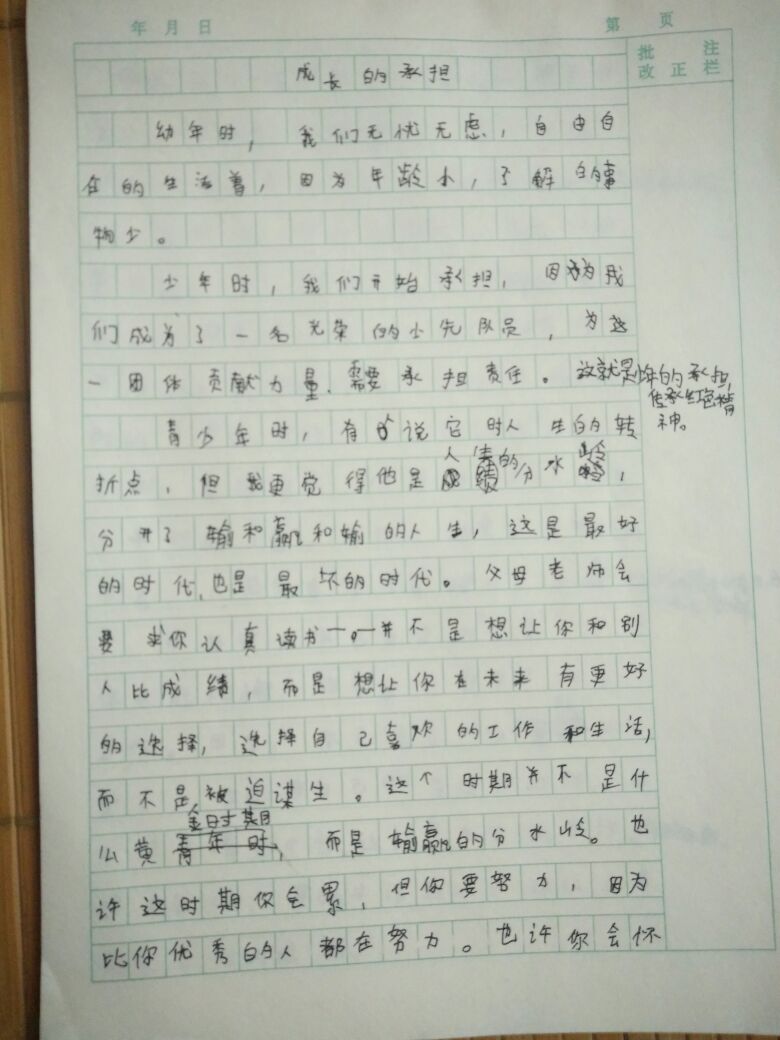 年 月 日
第 页
批注
改正栏
成长的承担
幼年时，我们无忧无虑，自由自
在的生活着，因为年龄小，了解的事
物少。
少年时，我们开始承担，因为我
们成为了一名光荣的少先队员，为这
一团体贡献力量、需要承担责任。这就是少年的承担，
传承红色精
神。
青少年时，有的说它时人生的转
折点，但我更觉得他是人生的分水岭，
分开了输和赢和输的人生，这是最好
的时代，也是最坏的时代。父母老师会
要求你认真读书，并不是想让你和别
人比成绩，而是想让你在未来有更好
的选择，选择自己喜欢的工作和生活，
而不是被迫谋生。这个时期并不是什
么黄金时期，而是输赢的分水岭。也
许这时期你会累，但你要努力，因为
比你优秀的人都在努力。也许你会怀